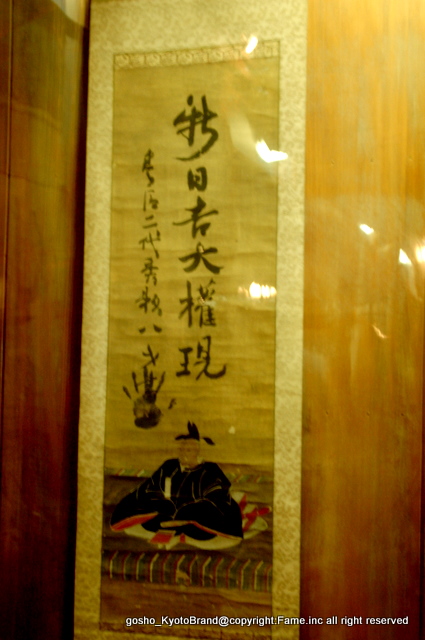 新日吉大權現
二代秀頼八才
gosho_KyotoBrand@copyright:Fame.inc all right reserved